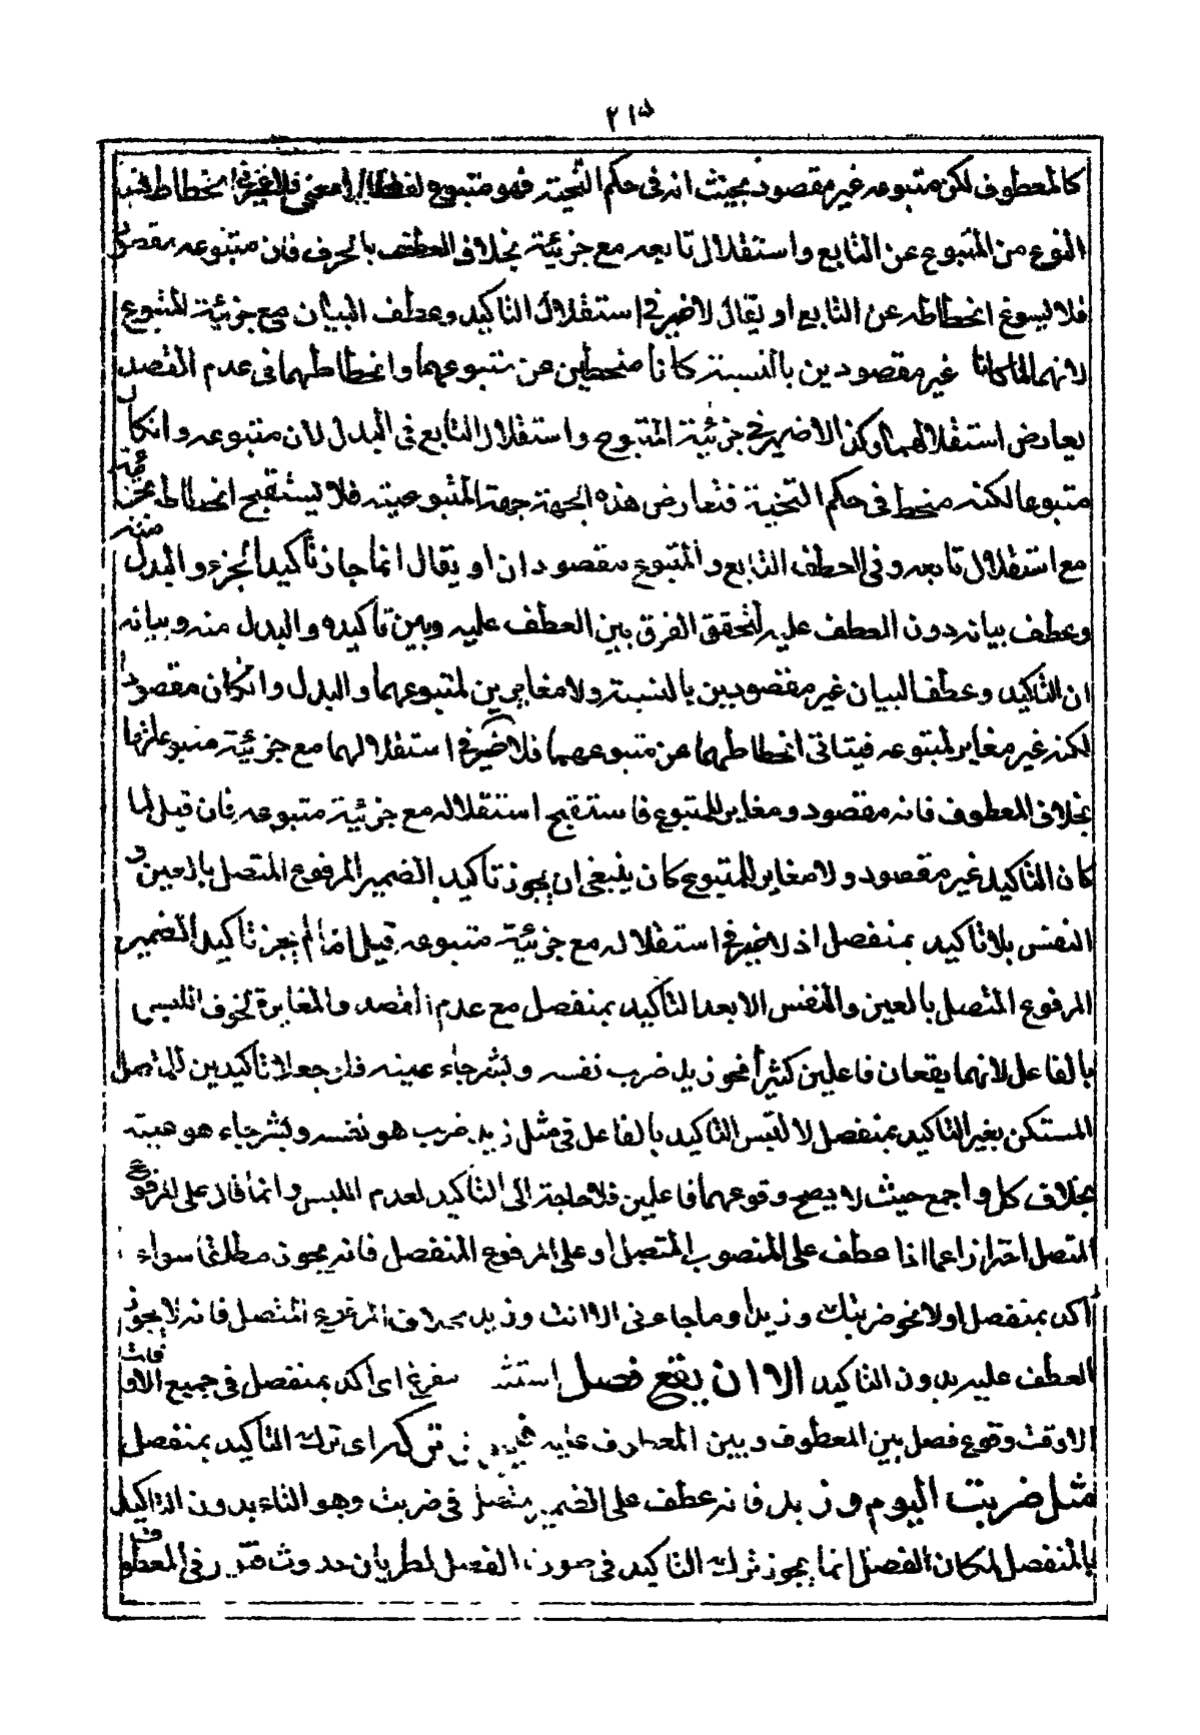 ٢١٥
كالمعطوف لكن متبوعه غير مقصود بحيث انه فى حكم التنحية فهو متبوع لفظا لا معنى فلا غير فى انحطاط هذا
النوع من المتبوع عن التابع واستقلال تابعه مع جزئية بخلاف العطف بالحرف فان متبوعه مقصود
فلا يسوغ انحطاطه عن التابع او يقال لاضير فى استقلال التاكيد وعطف البيان مع جزئية المتبوع
لانهما لما كانا غير مقصودين بالنسبة كانا منحطين عن متبوعهما وانحطاطهما فى عدم القصد
يعارض استقلالهما وكذا لاضير فى جزئية المتبوع واستقلال التابع فى البدل لان متبوعه وانكان
متبوعا لكنه منحط فى حكم التنحية فتعارض هذه الجهة جهة المتبوعية فلا يستقبح انحطاطه بجزئيته
مع استقلال تابعه وفى العطف التابع والمتبوع مقصودان او يقال انما جاز تأكيد الجزء والبدل منه
وعطف بيانه دون العطف عليه لتحقق الفرق بين العطف عليه وبين تأكيده والبدل منه وبيانه
ان التاكيد وعطف البيان غير مقصودين بالنسبة ولا مغايرين لمتبوعهما والبدل وانكان مقصودا
لكنه غير مغاير لمتبوعه فيتاتى انحطاطهما عن متبوعهما فلا ضير فى استقلالهما مع جزئية متبوعاتها
بخلاف المعطوف فانه مقصود ومغاير للمتبوع فاستقبح استقلاله مع جزئية متبوعه فان قيل لما
كان التاكيد غير مقصود ولا مغاير للمتبوع كان ينبغى ان يجوز تاكيد الضمير المرفوع المتصل بالعين و
النفس بلا تاكيد بمنفصل اذ لاضير فى استقلاله مع جزئية متبوعه قيل انما لم يجز تأكيد الضمير
المرفوع المتصل بالعين والنفس الا بعد التأكيد بمنفصل مع عدم القصد والمغايرة لخوف اللبس
بالفاعل لانهما يقعان فاعلين كثيرا نحو زيد ضرب نفسه وبشر جاء عينه فلو جعلا تاكيدين للمتصل
المستكن بغير التاكيد بمنفصل لالتبس التاكيد بالفاعل فى مثل زيد ضرب هو نفسه وبشر جاء هو عينه
بخلاف كل واجمع حيث لا يصح وقوعهما فاعلين فلا حاجة الى التأكيد لعدم اللبس وانما قال على المرفوع
المتصل احترازا عما اذا عطف على المنصوب المتصل او على المرفوع المنفصل فانه يجوز مطلقا سواء
أكد بمنفصل اولا نحو ضربتك وزيدا وما جاءنى الا انت وزيد بخلاف المرفوع المتصل فانه لا يجوز
العطف عليه بدون التاكيد الا ان يقع فصل استثناء مفرغ اى أكد بمنفصل فى جميع الاوقات
الا وقت وقوع فصل بين المعطوف وبين المعطوف عليه فيجوز تركه اى ترك التأكيد بمنفصل
مثل ضربت اليوم وزيد فانه عطف على الضمير متصل فى ضربت وهو التاء بدون التاكيد
بالمنفصل لمكان الفصل انما يجوز ترك التاكيد فى صورة الفصل لطريان حدوث فتور فى المعطوف